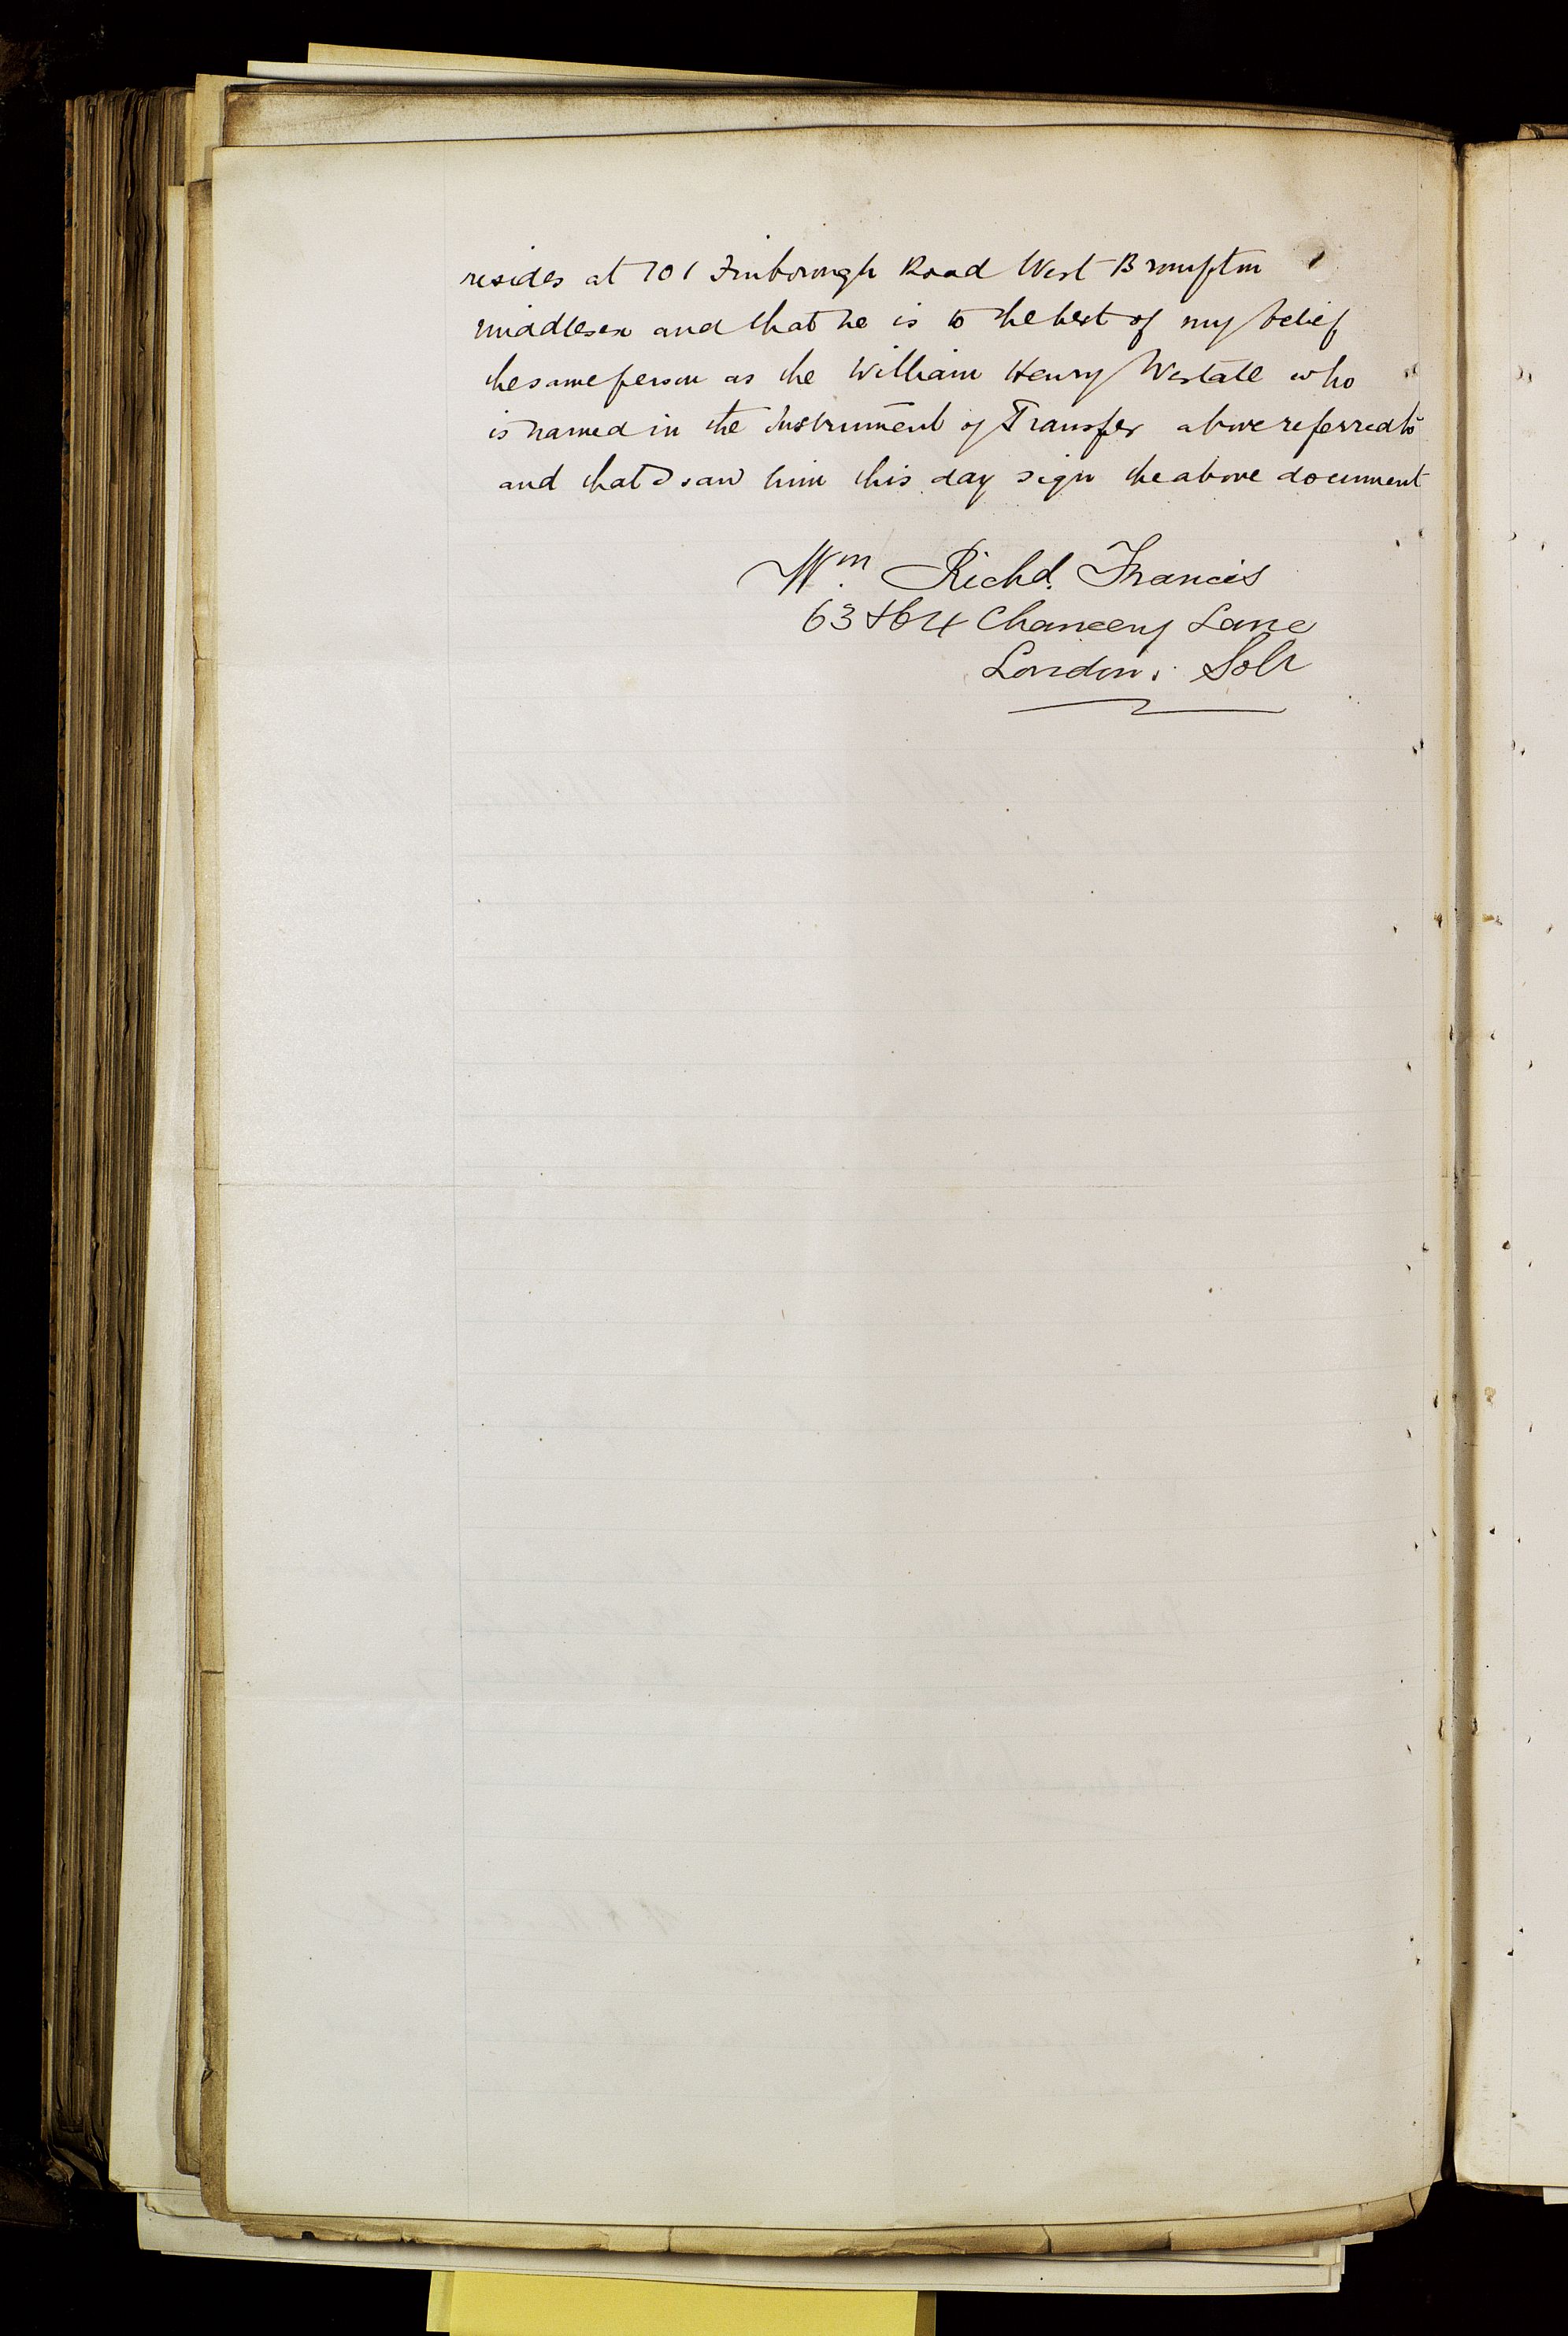 resides at 101 Finborough Road West Brompton
Middlesex and that he is to the best of my belief
the same person as the William Henry Westall who
is named in the Instrument of Transfer above referred to
and that I saw him this day sign the above document
Wm Richd. Francis
63 & 64 Chancery Lane
London. Solr